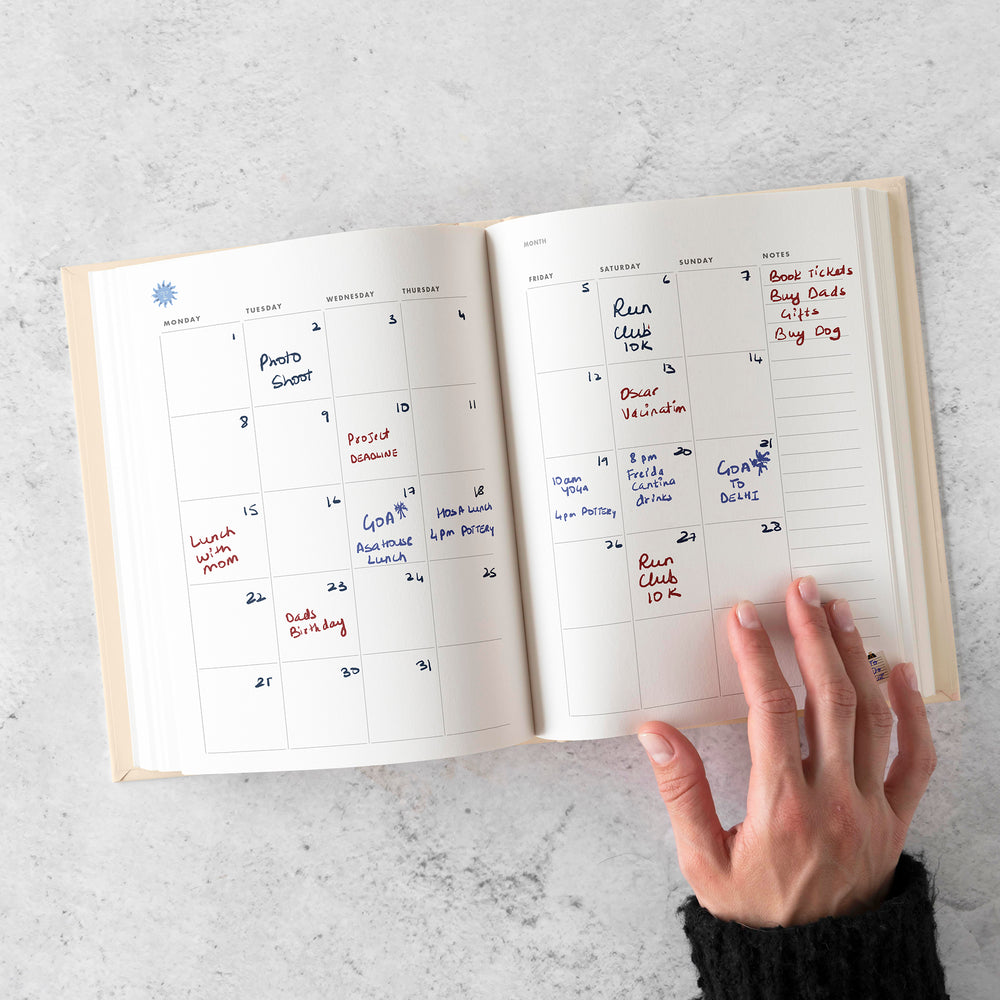 MONTH
MONDAY TUESDAY WEDNESDAY THURSDAY FRIDAY SATURDAY SUNDAY NOTES
1
2
Photo
Shoot
3
4
5
6
Run
Club
10K
7
Book Tickets
Buy Dads
Gifts
Buy Dog
8
9
10
Project
DEADLINE
11
12
13
Oscar
Vacination
14
15
Lunch
with
mom
16
17
GOA
Asahouse
Lunch
18
HOSA Lunch
4pm POTTERY
19
10am
YOGA
4pm POTTERY
20
8pm
Freida
Cantina
drinks
21
GOA
TO
DELHI
22
23
Dads
Birthday
24
25
26
27
Run
Club
10K
28
30
31